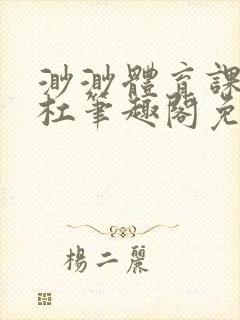 渺渺體育課
杜筆趣閣免
楊二麗